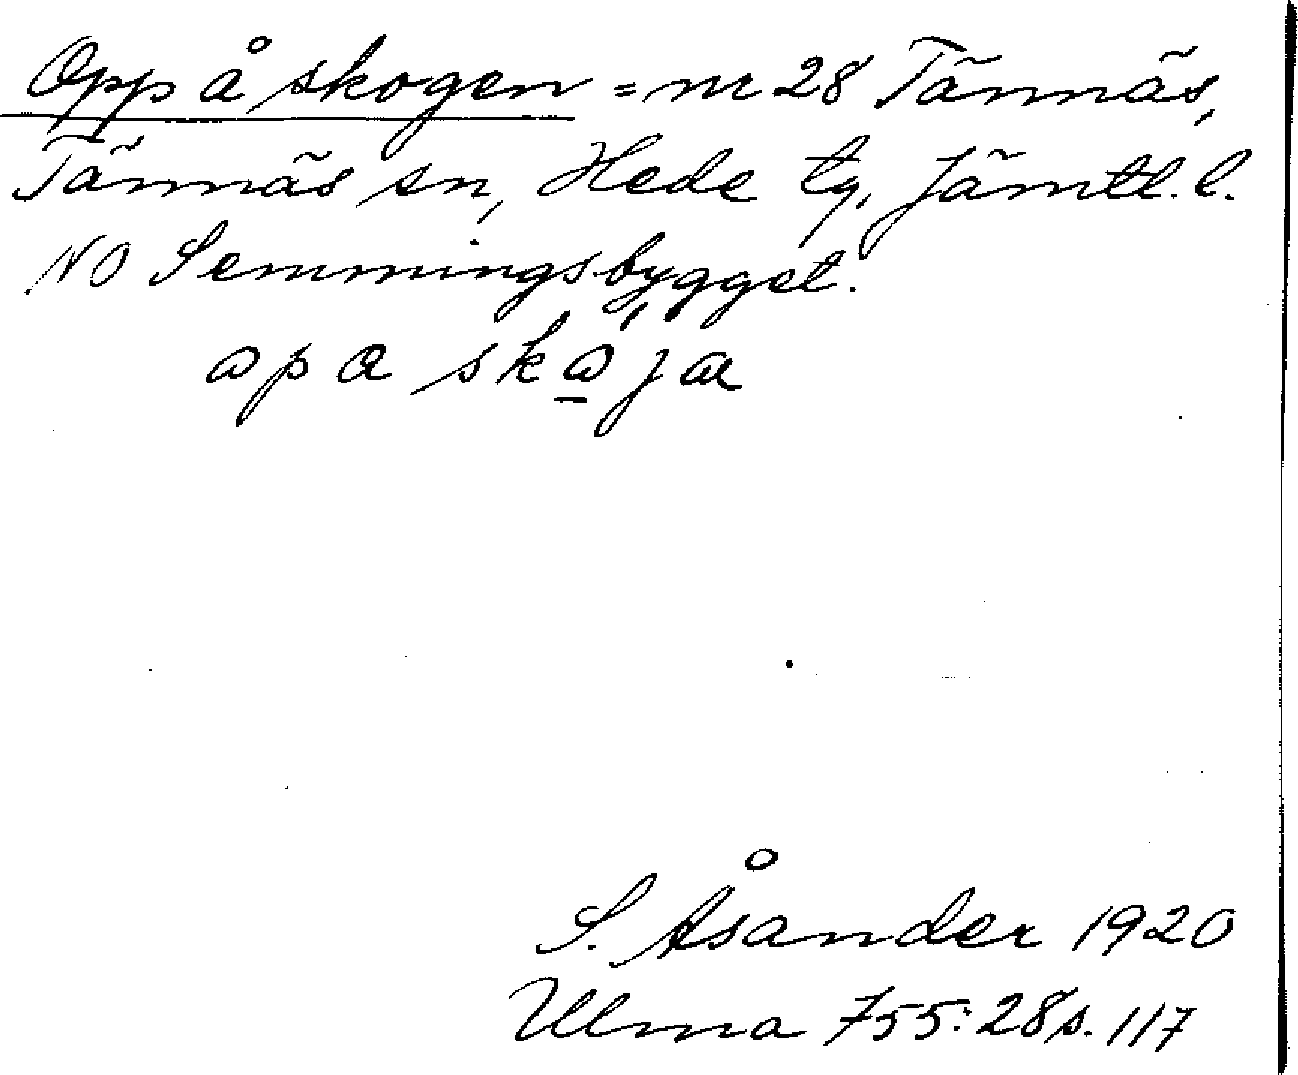 Opp å skogen = nr 28 Tännäs,
Tännäs sn, Hede tg, Jämtl. l.
NO Semmingsbygget.
opa skoja
S. Åsander 1920
Ulma 755:28 s. 117